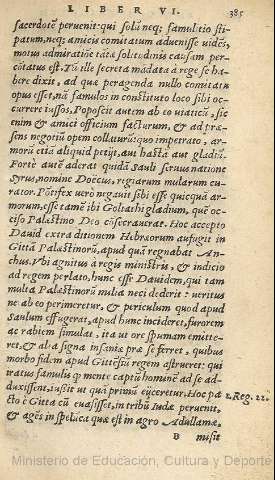 LIBER VI. 385
sacerdotē peruenit: qui solū neq; famulitio sti
patum, neq; amicis comitatum aduenisse uidēs,
motus admiratiōe tātæ solitudinis causam per
cōtatus est. Tū ille secreta mādata à rege se ha
bere dixit, ad quæ peragenda nullo comitatu
opus esset, nā famulos in constituto loco sibi oc
currere iussos. Poposcit autem ab eo uiaticū, sic
enim & amici officium facturum, & ad præ
sens negotiū opem collaturū: quo impetrato, ar
morū etiā aliquid petijt, aut hastā aut gladiū.
Fortè autē aderat quidā Sauli seruus natione
Syrus, nomine Doëcus, regiarum mularum cu
rator. Pōtifex uerò negauit sibi esse quicquā ar
morum, esse tamē ibi Goliathi gladium, quē oc
ciso Palæstino Deo cōsecrauerat. Hoc accepto
Dauid extra ditionem Hebræorum aufugit in
Gittā Palæstinorū, apud quā regnabat An
chus. Vbi agnitus à regis ministris, & indicio
ad regem perlato, hunc esse Dauidem, qui tam
multa Palæstinorū milia neci dederit: ueritus
ne ab eo perimeretur, & periculum quod apud
Saulum effugerat, apud hunc incideret, furorem
ac rabiem simulat, ita ut ore spumam emitte
ret, & alia signa insaniæ præ se ferret, quibus
morbo fidem apud Gittēsiū regem astrueret: qui
iratus famulis q mente captū hominē ad se ad
duxissent, iussit ut quā primū eijceretur. Hoc pa
cto è Gitta cū euasisset, in tribū Iudæ peruenit, 1. Reg. 22.
& agēs in spelūca quæ est in agro Adullamæ,
B misit
Ministerio de Educación, Cultura y Deporte